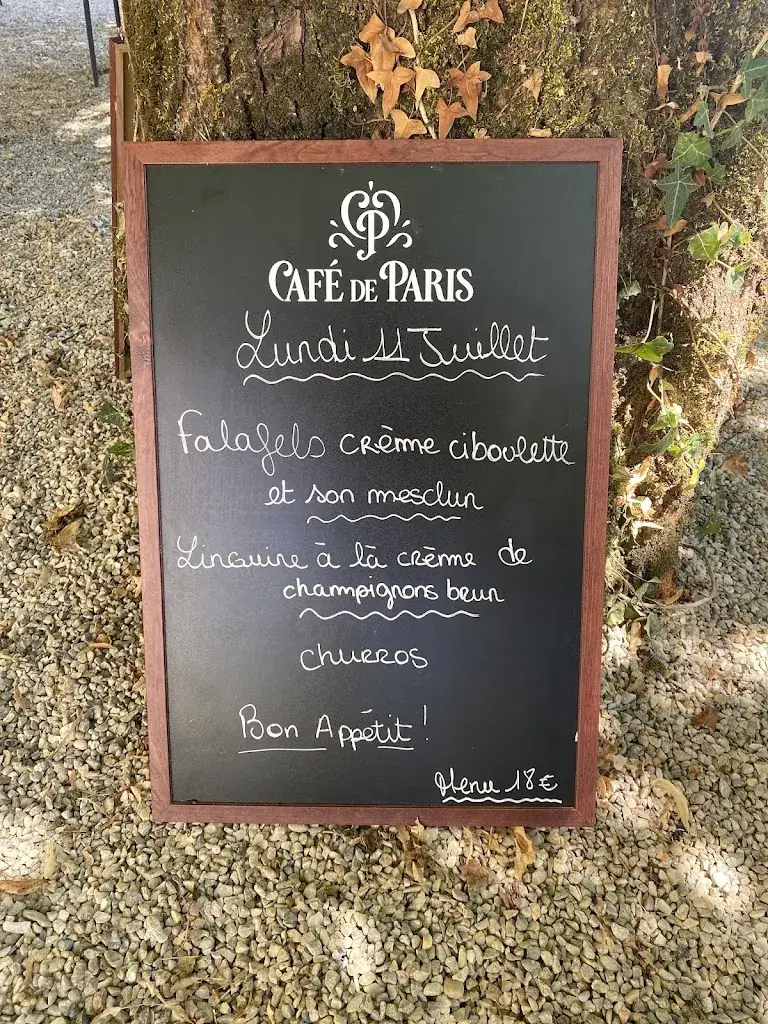 CP
CAFÉ DE PARIS
Lundi 11 Juillet
Falafels crème ciboulette
et son mesclun
Linguine à là crème de
champignons brun
churros
Bon Appétit !
Menu 18€